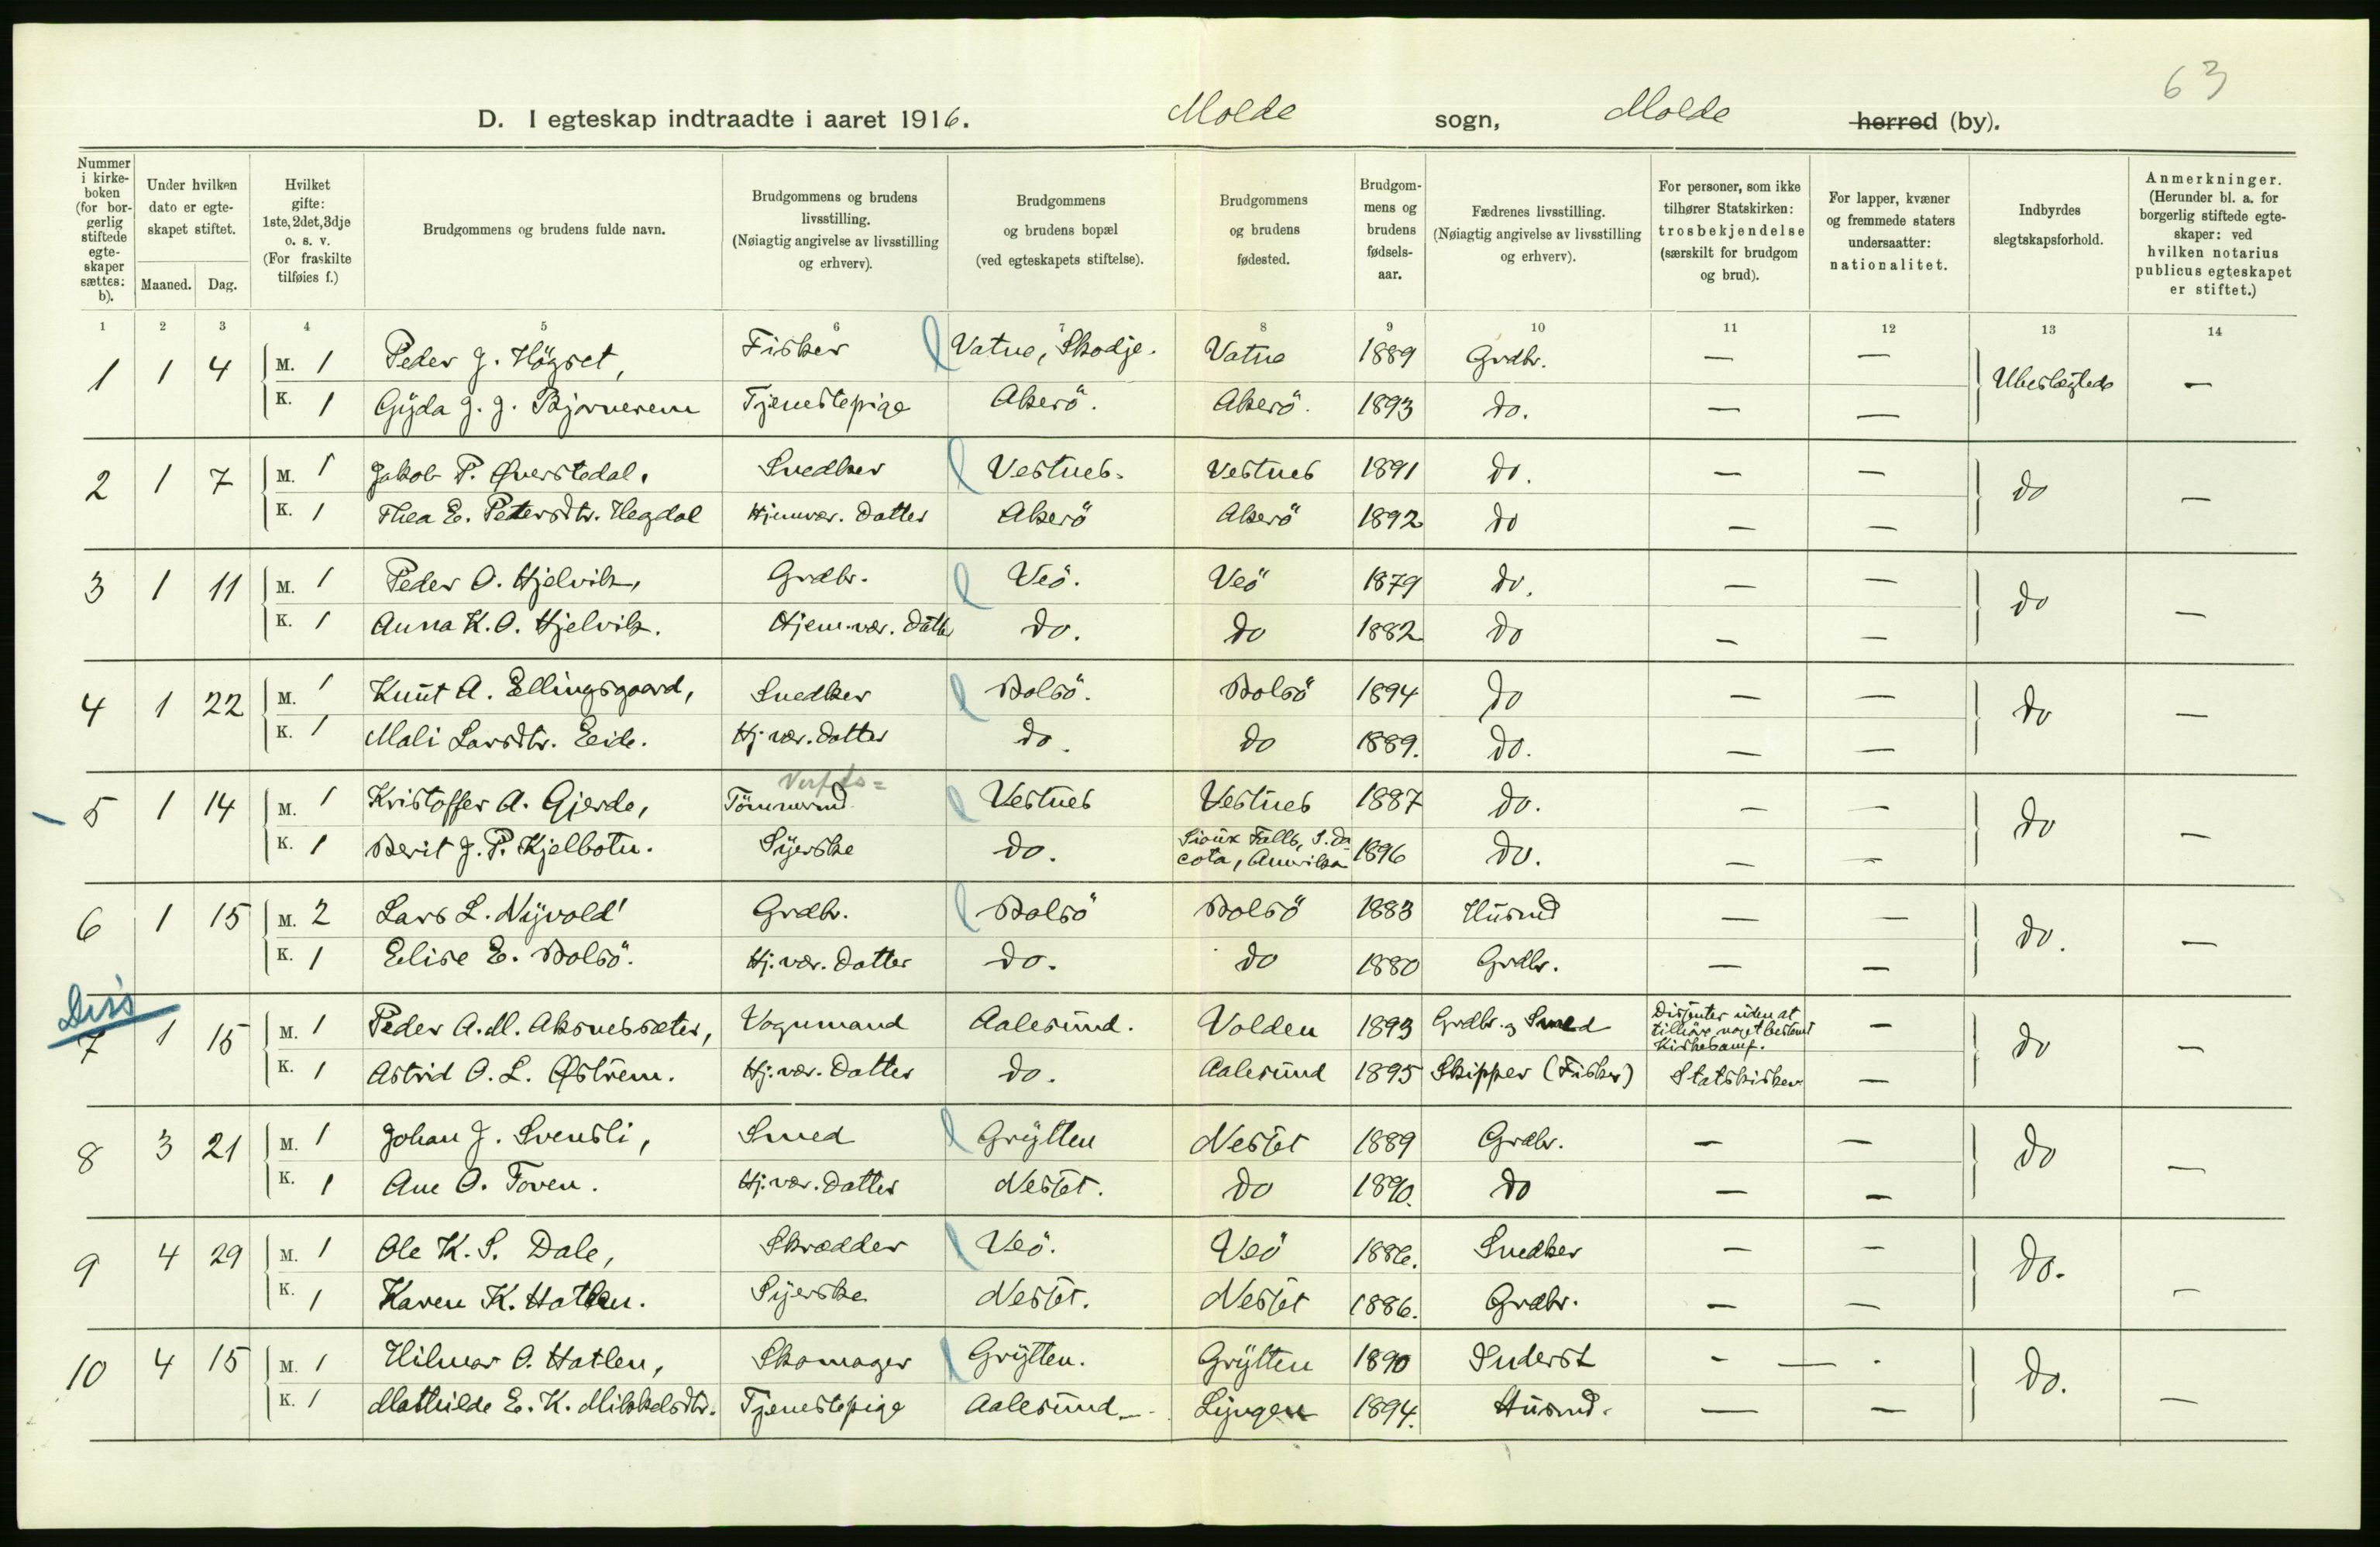 63
D. I egteskap indtraadte i aaret 1916. Molde sogn, Molde herred (by).
Nummer i kirke-boken (for bor-gerlig stiftede egte-skaper sættes: b).
Under hvilken dato er egte-skapet stiftet.
Maaned. Dag.
Hvilket gifte: 1ste, 2det, 3dje o. s. v. (For fraskilte tilføies f.)
Brudgommens og brudens fulde navn.
Brudgommens og brudens livsstilling. (Nøiagtig angivelse av livsstilling og erhverv).
Brudgommens og brudens bopæl (ved egteskapets stiftelse).
Brudgommens og brudens fødested.
Brudgom-mens og brudens fødsels-aar.
Fædrenes livsstilling. (Nøiagtig angivelse av livsstilling og erhverv).
For personer, som ikke tilhører Statskirken: trosbekjendelse (særskilt for brudgom og brud).
For lapper, kvæner og fremmede staters undersaatter: nationalitet.
Indbyrdes slegtskapsforhold.
Anmerkninger. (Herunder bl. a. for borgerlig stiftede egte-skaper: ved hvilken notarius publicus egteskapet er stiftet.)
1 2 3 4 5 6 7 8 9 10 11 12 13 14
1 1 4 M. 1 Peder J. Högset, Fisker Vatne, Skodje. Vatne 1889 Grdbr. — — Ubeslægtede —
K. 1 Gyda J. J. Bjørnerem Tjenestepige Akerö. Akerö. 1893 do. — —
2 1 7 M. 1 Jakob P. Øverstedal, Snedker Vestnes. Vestnes 1891 do. — — do —
K. 1 Thea E. Petersdtr. Hegdal Hjemvær. Datter Akerö Akerö 1892 do — —
3 1 11 M. 1 Peder O. Hjelvik, Grdbr. Veö. Veö 1879 do. — — do —
K. 1 Anna K. O. Hjelvik. Hjem.vær. Datter do. do 1882 do — —
4 1 22 M. 1 Knut A. Ellingsgaard, Snedker Bolsö. Bolsö 1894 do — — do —
K. 1 Mali Larsdtr. Eide. Hj.vær. Datter do. do 1889. do. — —
5 1 14 M. 1 Kristoffer A. Gjerde, Tömmermd. Vestnes Vestnes 1887 do. — — do —
K. 1 Berit J. P. Kjelbotn. Syerske do. Sioux Falls, S. Da cota, Amerika 1896 do. — —
6 1 15 M. 2 Lars L. Nyvold Grdbr. Bolsö Bolsö 1883 Husmd — — do. —
K. 1 Elise E. Bolsö. Hj.vær. Datter do. do 1880 Grdbr. — —
Diss
7 1 15 M. 1 Peder A. M. Aksnessæter, Vognmand Aalesund. Volden 1893 Grdbr. og Smed Dissenter uden at tilhøre noget bestemt Kirkesamf. — do —
K. 1 Astrid O. L. Østrem. Hj.vær. Datter do. Aalesund 1895 Skipper (Fisker) Statskirken —
8 3 21 M. 1 Johan J. Svensli, Smed Grytten Nesset 1889 Grdbr. — — do —
K. 1 Ane O. Toven. Hj.vær. Datter Nesset. do 1890. do — —
9 4 29 M. 1 Ole K. S. Dale, Skrædder Veö. Veö 1886. Snedker — — do. —
K. 1 Karen K. Hatlen. Syerske Nesset. Nesset 1886. Grdbr. — —
10 4 15 M. 1 Hilmar O. Hatlen, Skomager Grytten. Grytten 1890 Inderst - — . do. —
K. 1 Mathilde E. K. Mikkelsdtr. Tjenestepige Aalesund Lyngen 1894. Husmd. — —